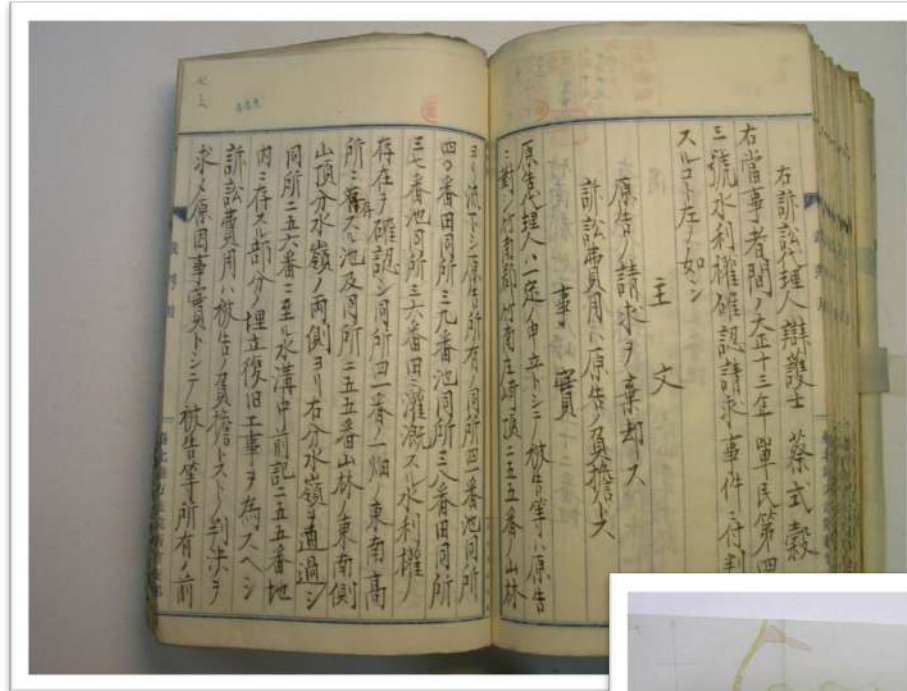 右訴訟代理人辯護士 蔡式穀
右當事者間ノ大正十三年單民第四
三號水利權確認請求事件ニ付判
スルコト左ノ如シ
主文
原告ノ請求ヲ棄却ス
訴訟費用ハ原告ノ負擔トス
事實
原告代理人ハ一定ノ申立トシテ被告等ハ原告
ニ對シ竹南郡竹南庄崎頂二五五番ノ山林
ヨリ流下シ原告所有ノ同所四一番池同所
四〇番田同所三九番池同所三八番田同所
三七番池同所三六番田ニ灌漑スル水利權ノ
存在ヲ確認シ同所四一番ノ一畑ノ東南高
所ニ存スル池及同所二五五番山林ノ東南側
山頂分水嶺ノ両側ヨリ右分水嶺ヲ通過シ
同所二五六番ニ至ル水溝中前記二五五番地
内ニ存スル部分ノ埋立復旧工事ヲ為スヘシ
訴訟費用ハ被告ノ負擔トストノ判決ヲ
求メ原因事實トシテ被告等所有ノ前